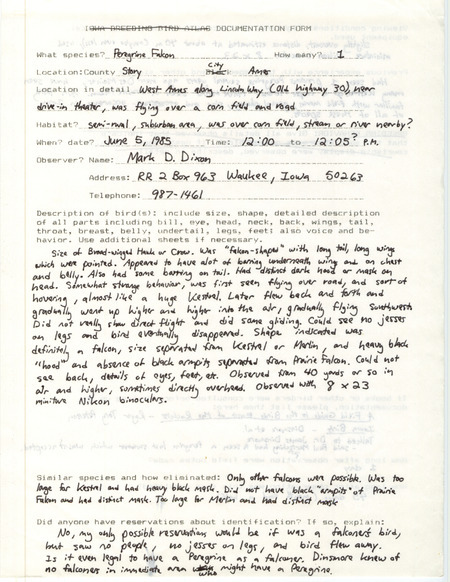 IOWA BREEDING BIRD ATLAS DOCUMENTATION FORM
What species? Peregrine Falcon How many? 1
Location: County Story City Ames
Location in detail West Ames along Lincoln Way (Old highway 30), near
drive-in theater, was flying over a corn field and road
Habitat? semi-rural, suburban area, was over corn field, stream or river nearby?
When? date? June 5, 1985 Time: 12:00 to 12:05? P.M.
Observer? Name: Mark D. Dixon
Address: RR 2 Box 963 Waukee, Iowa 50263
Telephone: 987-1461
Description of bird(s): include size, shape, detailed description
of all parts including bill, eye, head, neck, back, wings, tail,
throat, breast, belly, undertail, legs, feet: also voice and be-
havior. Use additional sheets if necessary.
Size of Broad-winged Hawk or Crow. Was "falcon-shaped" with long tail, long wings
which were pointed. Appeared to have alot of barring underneath wing and on chest
and belly. Also had some barring on tail. Had distinct dark hood or mask on
head. Somewhat strange behavior, was first seen flying over road, and sort of
hovering, almost like a huge Kestrel. Later flew back and forth and
gradually went up higher and higher into the air, gradually flying southwest.
Did not really show direct flight and did some gliding. Could see no jesses
on legs and bird eventually disappeared. Shape indicated was
definitely a falcon, size separated from Kestrel or Merlin, and heavy black
"hood" and absence of black armpits separated from Prairie Falcon. Could not
see back, details of eyes, feet, etc. Observed from 40 yards or so in
air and higher, sometimes directly overhead. Observed with 8 x 23
miniture Nikon binoculars.
Similar species and how eliminated: Only other falcons were possible. Was too
large for Kestrel and had heavy black mask. Did not have black "armpits" of Prairie
Falcon and had distinct mask. Too large for Merlin and had distinct mask
Did anyone have reservations about identification? If so, explain:
No, my only possible reservation would be if was a falconers bird,
but saw no people, no jesses on legs, and bird flew away.
Is it even legal to have a Peregrine as a falconer, Dinsmore knew of
no falconers in immediate area who might have a Peregrine.